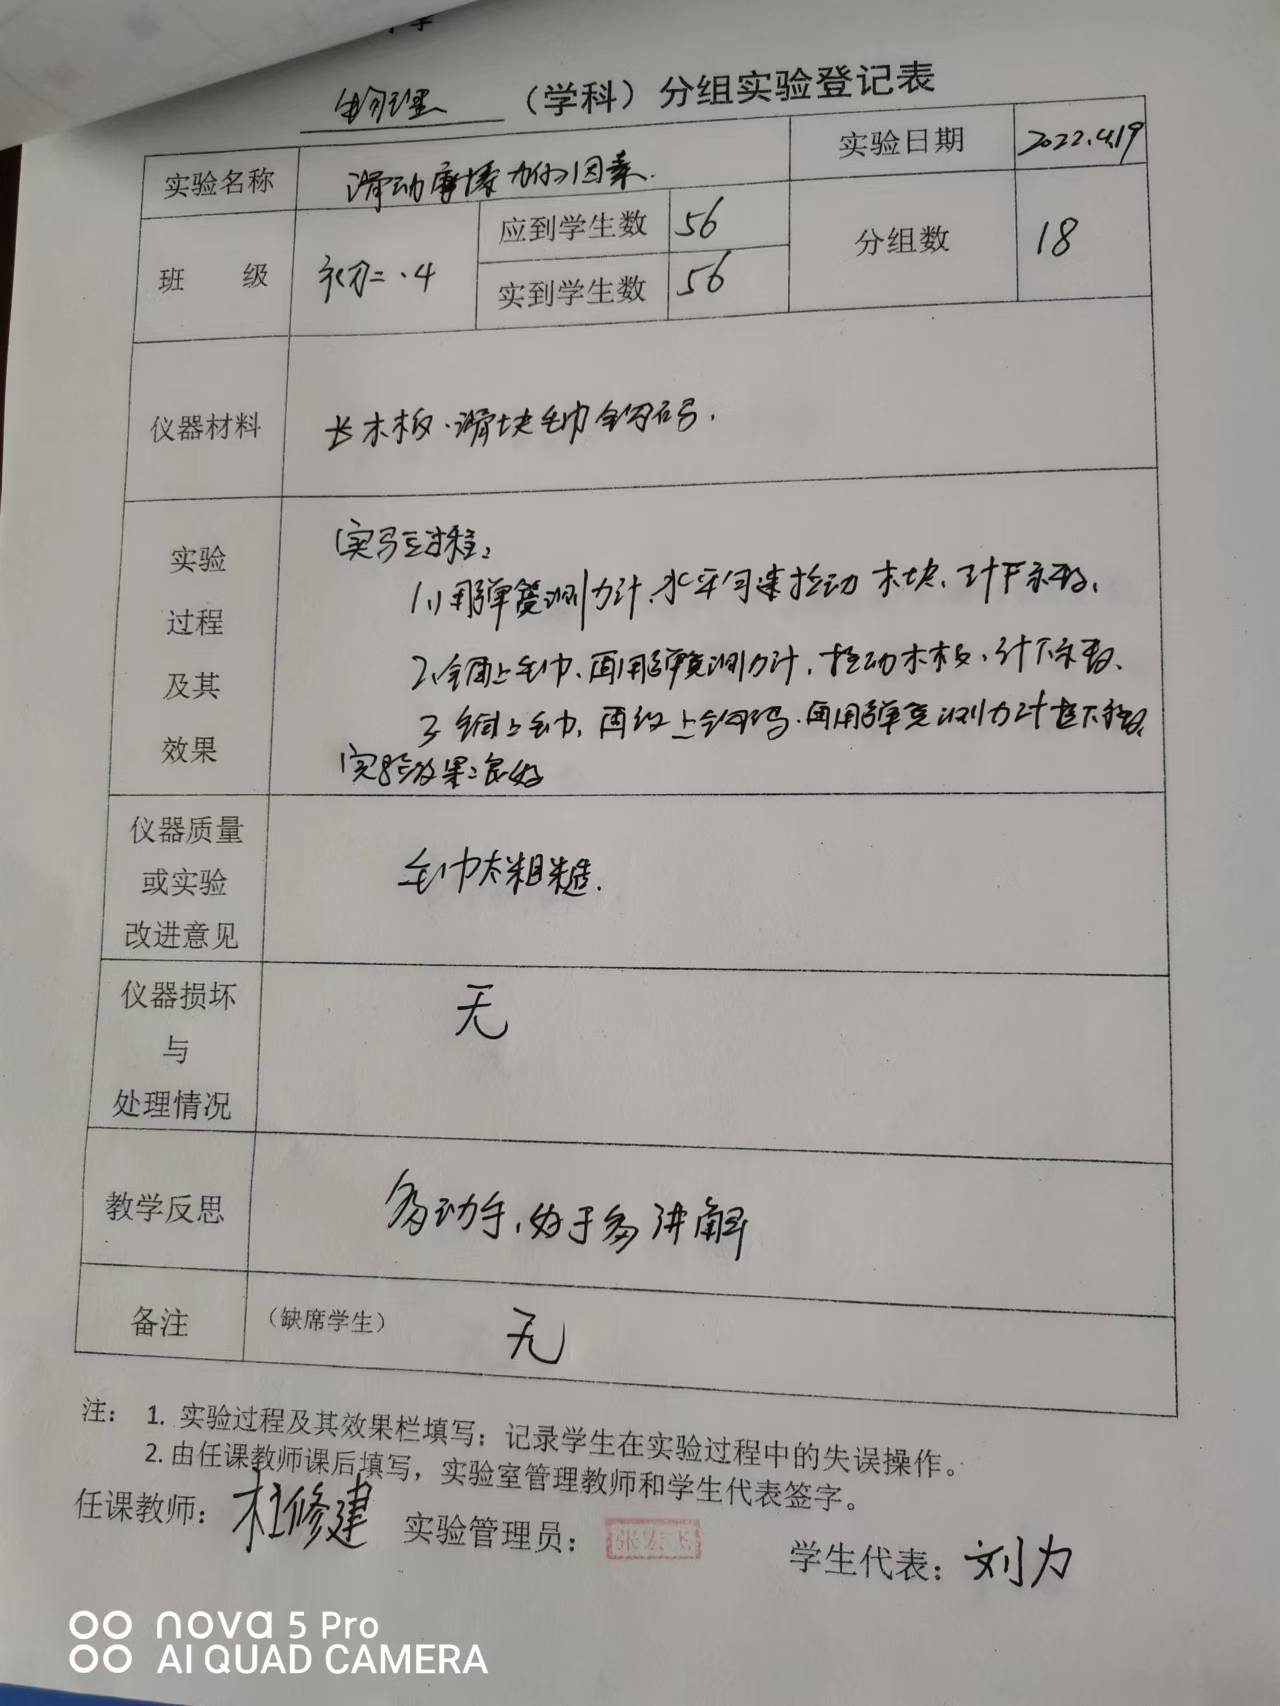 物理 （学科）分组实验登记表
实验名称 滑动摩擦力的因素. 实验日期 2022.4.19
班 级 初二.4 应到学生数 56 分组数 18
实到学生数 56
仪器材料 长木板.滑块毛巾钩码.
实验过程及其效果
实验过程:
1、用弹簧测力计、水平匀速拉动木块、计下示数、
2、铺上毛巾、再用弹簧测力计,拉动木板、计下示数、
3 铺上毛巾,再 上钩码.再用弹簧测力计 下示数
实验效果:良好
仪器质量
或实验
改进意见
毛巾太粗糙.
仪器损坏
与
处理情况
无
教学反思 多动手,好于多讲解
备注 （缺席学生） 无
注： 1. 实验过程及其效果栏填写：记录学生在实验过程中的失误操作。
2. 由任课教师课后填写，实验室管理教师和学生代表签字。
任课教师：杜修建 实验管理员：张宏飞 学生代表：刘力
nova 5 Pro
AI QUAD CAMERA